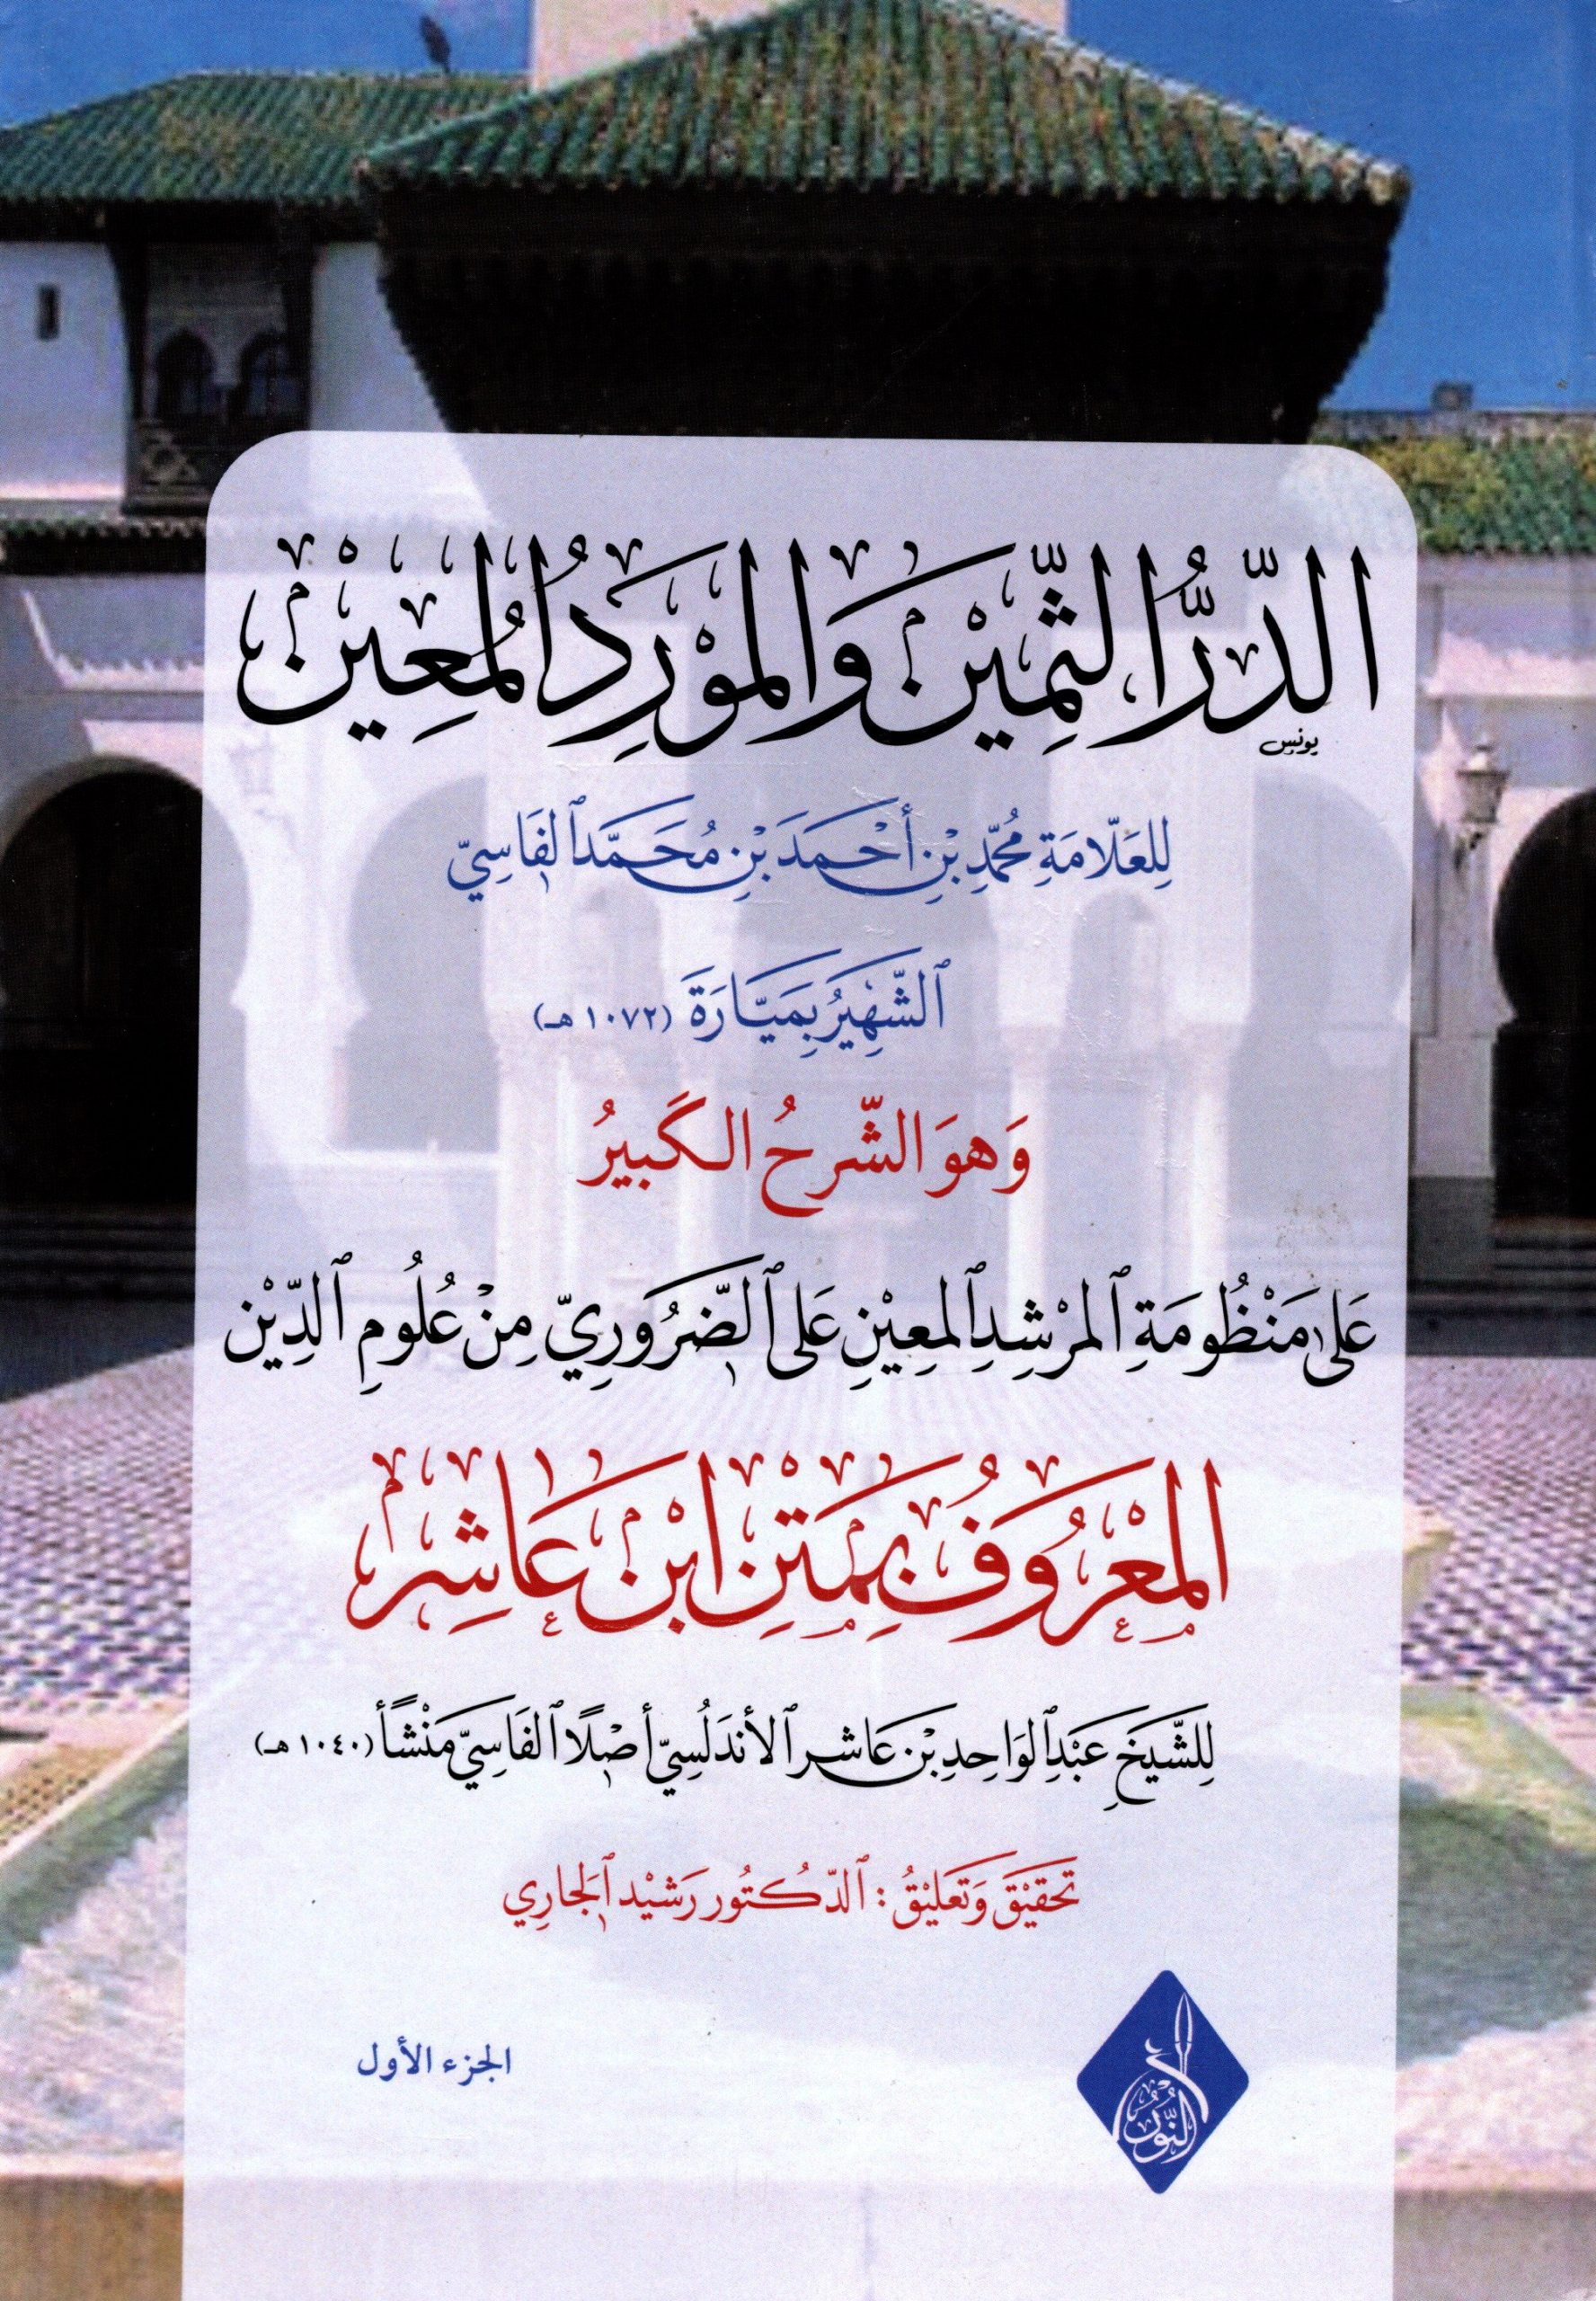 الدُّرُّ الثَّمِيْن وَالمَوْرِدُ المُعِيْن
يونس
لِلعَلّامَةِ مُحَمَّدِ بْنِ أَحْمَدَ بْنِ مُحَمَّد ٱلفَاسِيّ
ٱلشَّهِيْرُ بِمَيَّارَةَ (١٠٧٢ هـ)
وَهوَ الشَّرحُ الكَبيرُ
عَلىٰ مَنْظُومَةِ ٱلمرْشِدِ ٱلمعِيْنِ عَلى ٱلضَّرُوَرِيّ مِنْ عُلُومِ ٱلدِّيْن
المَعْرُوَفُ بِمَتْنِ ابْن عَاشِر
لِلشَّيَخِ عَبْدِ ٱلوَاحِدِ بْن عَاشر ٱلأندَلُسِيّ أصْلًا ٱلفَاسِيّ مَنْشَأً (١٠٤٠ هـ)
تحَقيْقَ وَتَعَليْقُ : ٱلدّكتُور رَشيْد ٱلجاري
الجزء الأول
النُّورُ